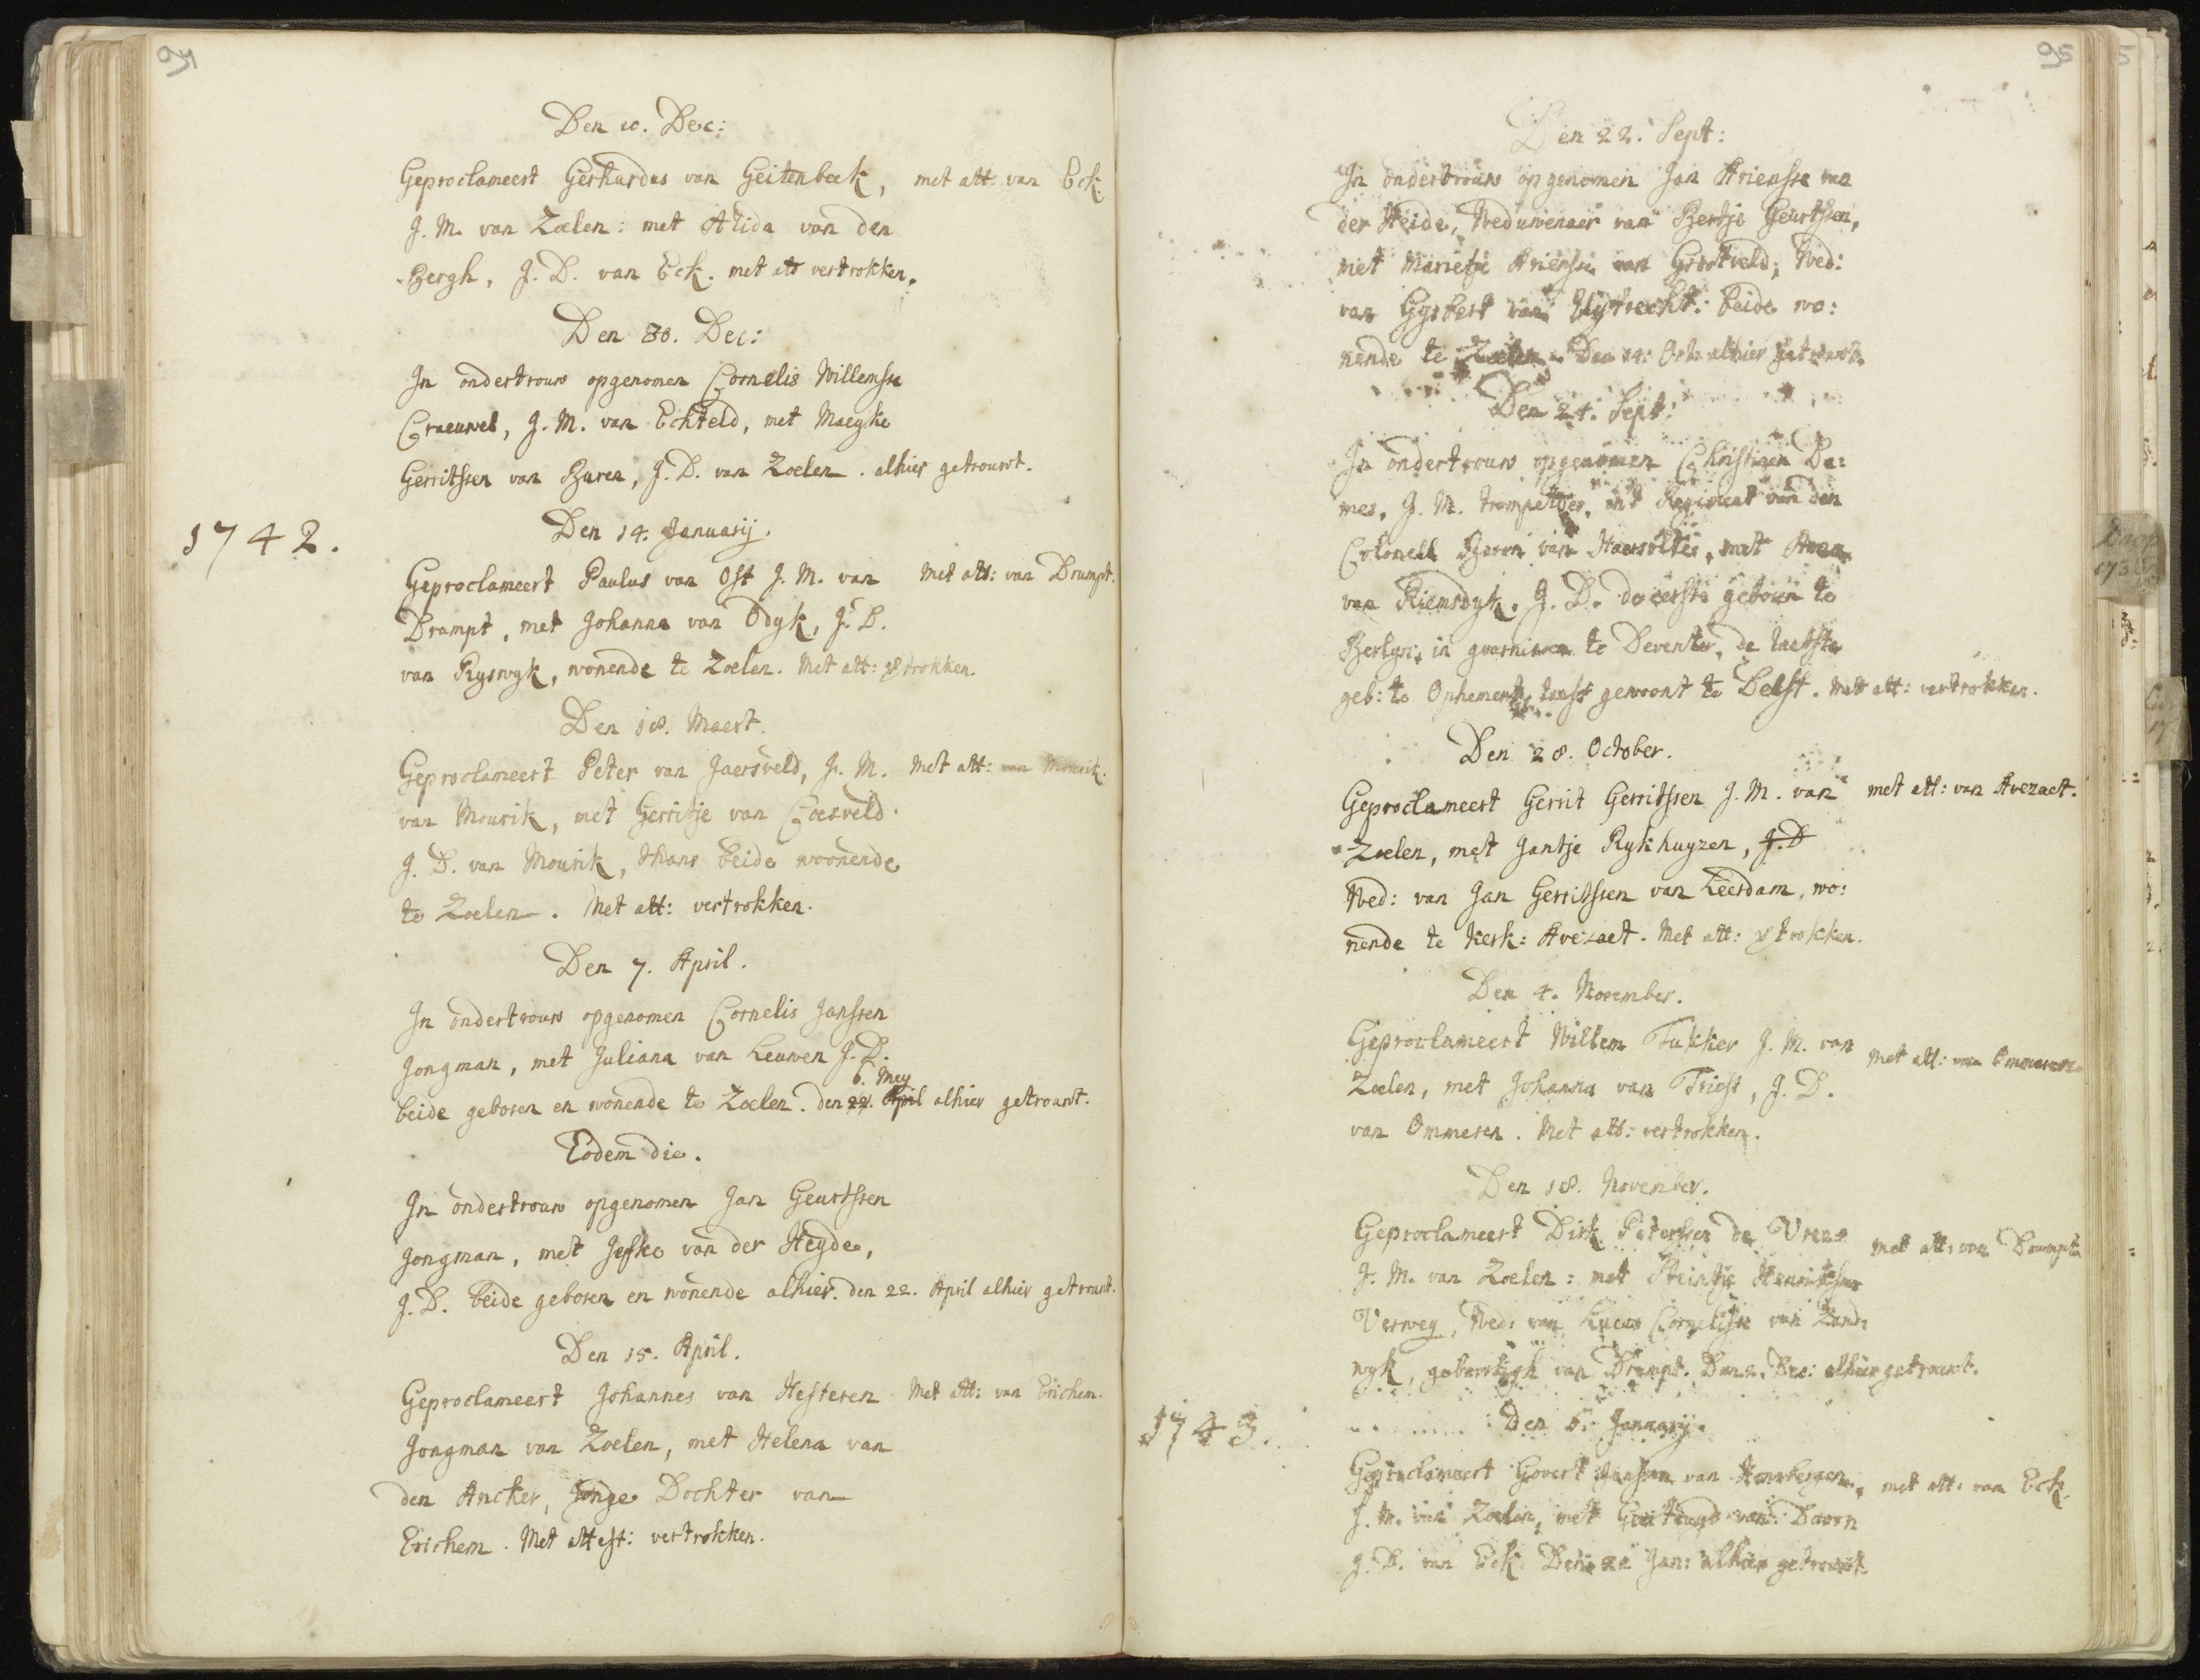 94
Den 10. Dec:
Geproclameert Gerhardus van Geitenbeek, met att: van Eck
J. M. van Zoelen: met Alida van den
Bergh, J. D. van Eck. met att vertrokken.
Den 30. Dec:
In ondertrouw opgenomen Cornelis Willemsse
Craeuwel, J. M. van Echteld, met Maeyke
Gerritssen van Buren, J. D. van Zoelen. alhier getrouwt.
1742.
Den 14. Januarij.
Geproclameert Paulus van Ost J. M. van Met att: van Drumpt.
Drumpt, met Johanna van Odyk, J. D.
van Ryswyk, wonende te Zoelen. Met att: vtrokken.
Den 18. Maert.
Geproclameert Peter van Jaersveld, J. M. Met att: van Mourik.
van Mourik, met Gerritje van Coesveld
J. D. van Mourik, thans beide woonende
te Zoelen. Met att: vertrokken.
Den 7. April.
In ondertrouw opgenomen Cornelis Janssen
Jongman, met Juliana van Leuwen J. D.
6. Mey
beide geboren en wonende te Zoelen. den 22. April alhier getrouwt.
Eodem die.
In ondertrouw opgenomen Jan Geurtssen
Jongman, met Jeske van der Heyde,
J. D. beide geboren en wonende alhier. den 22. April alhier getrouwt.
Den 15. April.
Geproclameert Johannes van Hesteren Met att: van Erichem.
Jongman van Zoelen, met Helena van
den Ancker, Jonge Dochter van
Erichem. Met attest: vertrokken.
95
Den 22. Sept:
In ondertrouw opgenomen Jan Ariensse van
der Heide, Weduwenaer van Bertje Geurtssen,
met Marietje Ariensse van Grootveld, Wed:
van Gysbert van Uytrecht: beide wo:
nende te Zoelen. Den 14. Oct. alhier getrouwt.
Den 24. Sept:
In ondertrouw opgenomen Christiaen Da:
mes, J. M. trompetter, in't Regiment van den
Colonell Baron van Haersoltes, met Anna
van Riemsdyk, J. D. de eerste geboren te
Berlyn, in guarnisoen te Deventer, de laetste
geb: te Ophemert, laest gewoont te Delft. Met att: vertrokken.
Den 28. October.
Geproclameert Gerrit Gerritssen J. M. van met att: van Avezaet.
Zoelen, met Jantje Rykhuyzen, J. D
Wed: van Jan Gerritssen van Leerdam, wo:
nende te Kerk: Avezaet. Met att: vtrokken.
Den 4. November.
Geproclameert Willem Tukker J. M. van Met att: van Ommeren.
Zoelen, met Johanna van Triest, J. D.
van Ommeren. Met att: vertrokken.
Den 18. November.
Geproclameert Dirk Peterssen de Vree Met att: van Drumpt
J. M. van Zoelen: met Heintje
Verwey, Wed: van Lucas Cornelisse van Zand:
wyk, geboortigh van Drumpt. Den 2. Dec: alhier getrouwt.
1743.
Den 6. Januarij.
Geproclameert Govert Janssen van, met att: van Eck.
J. M. van Zoelen, met Geertruyd van Doorn
J. D. van Eck Den Jan: alhier getrouwt.